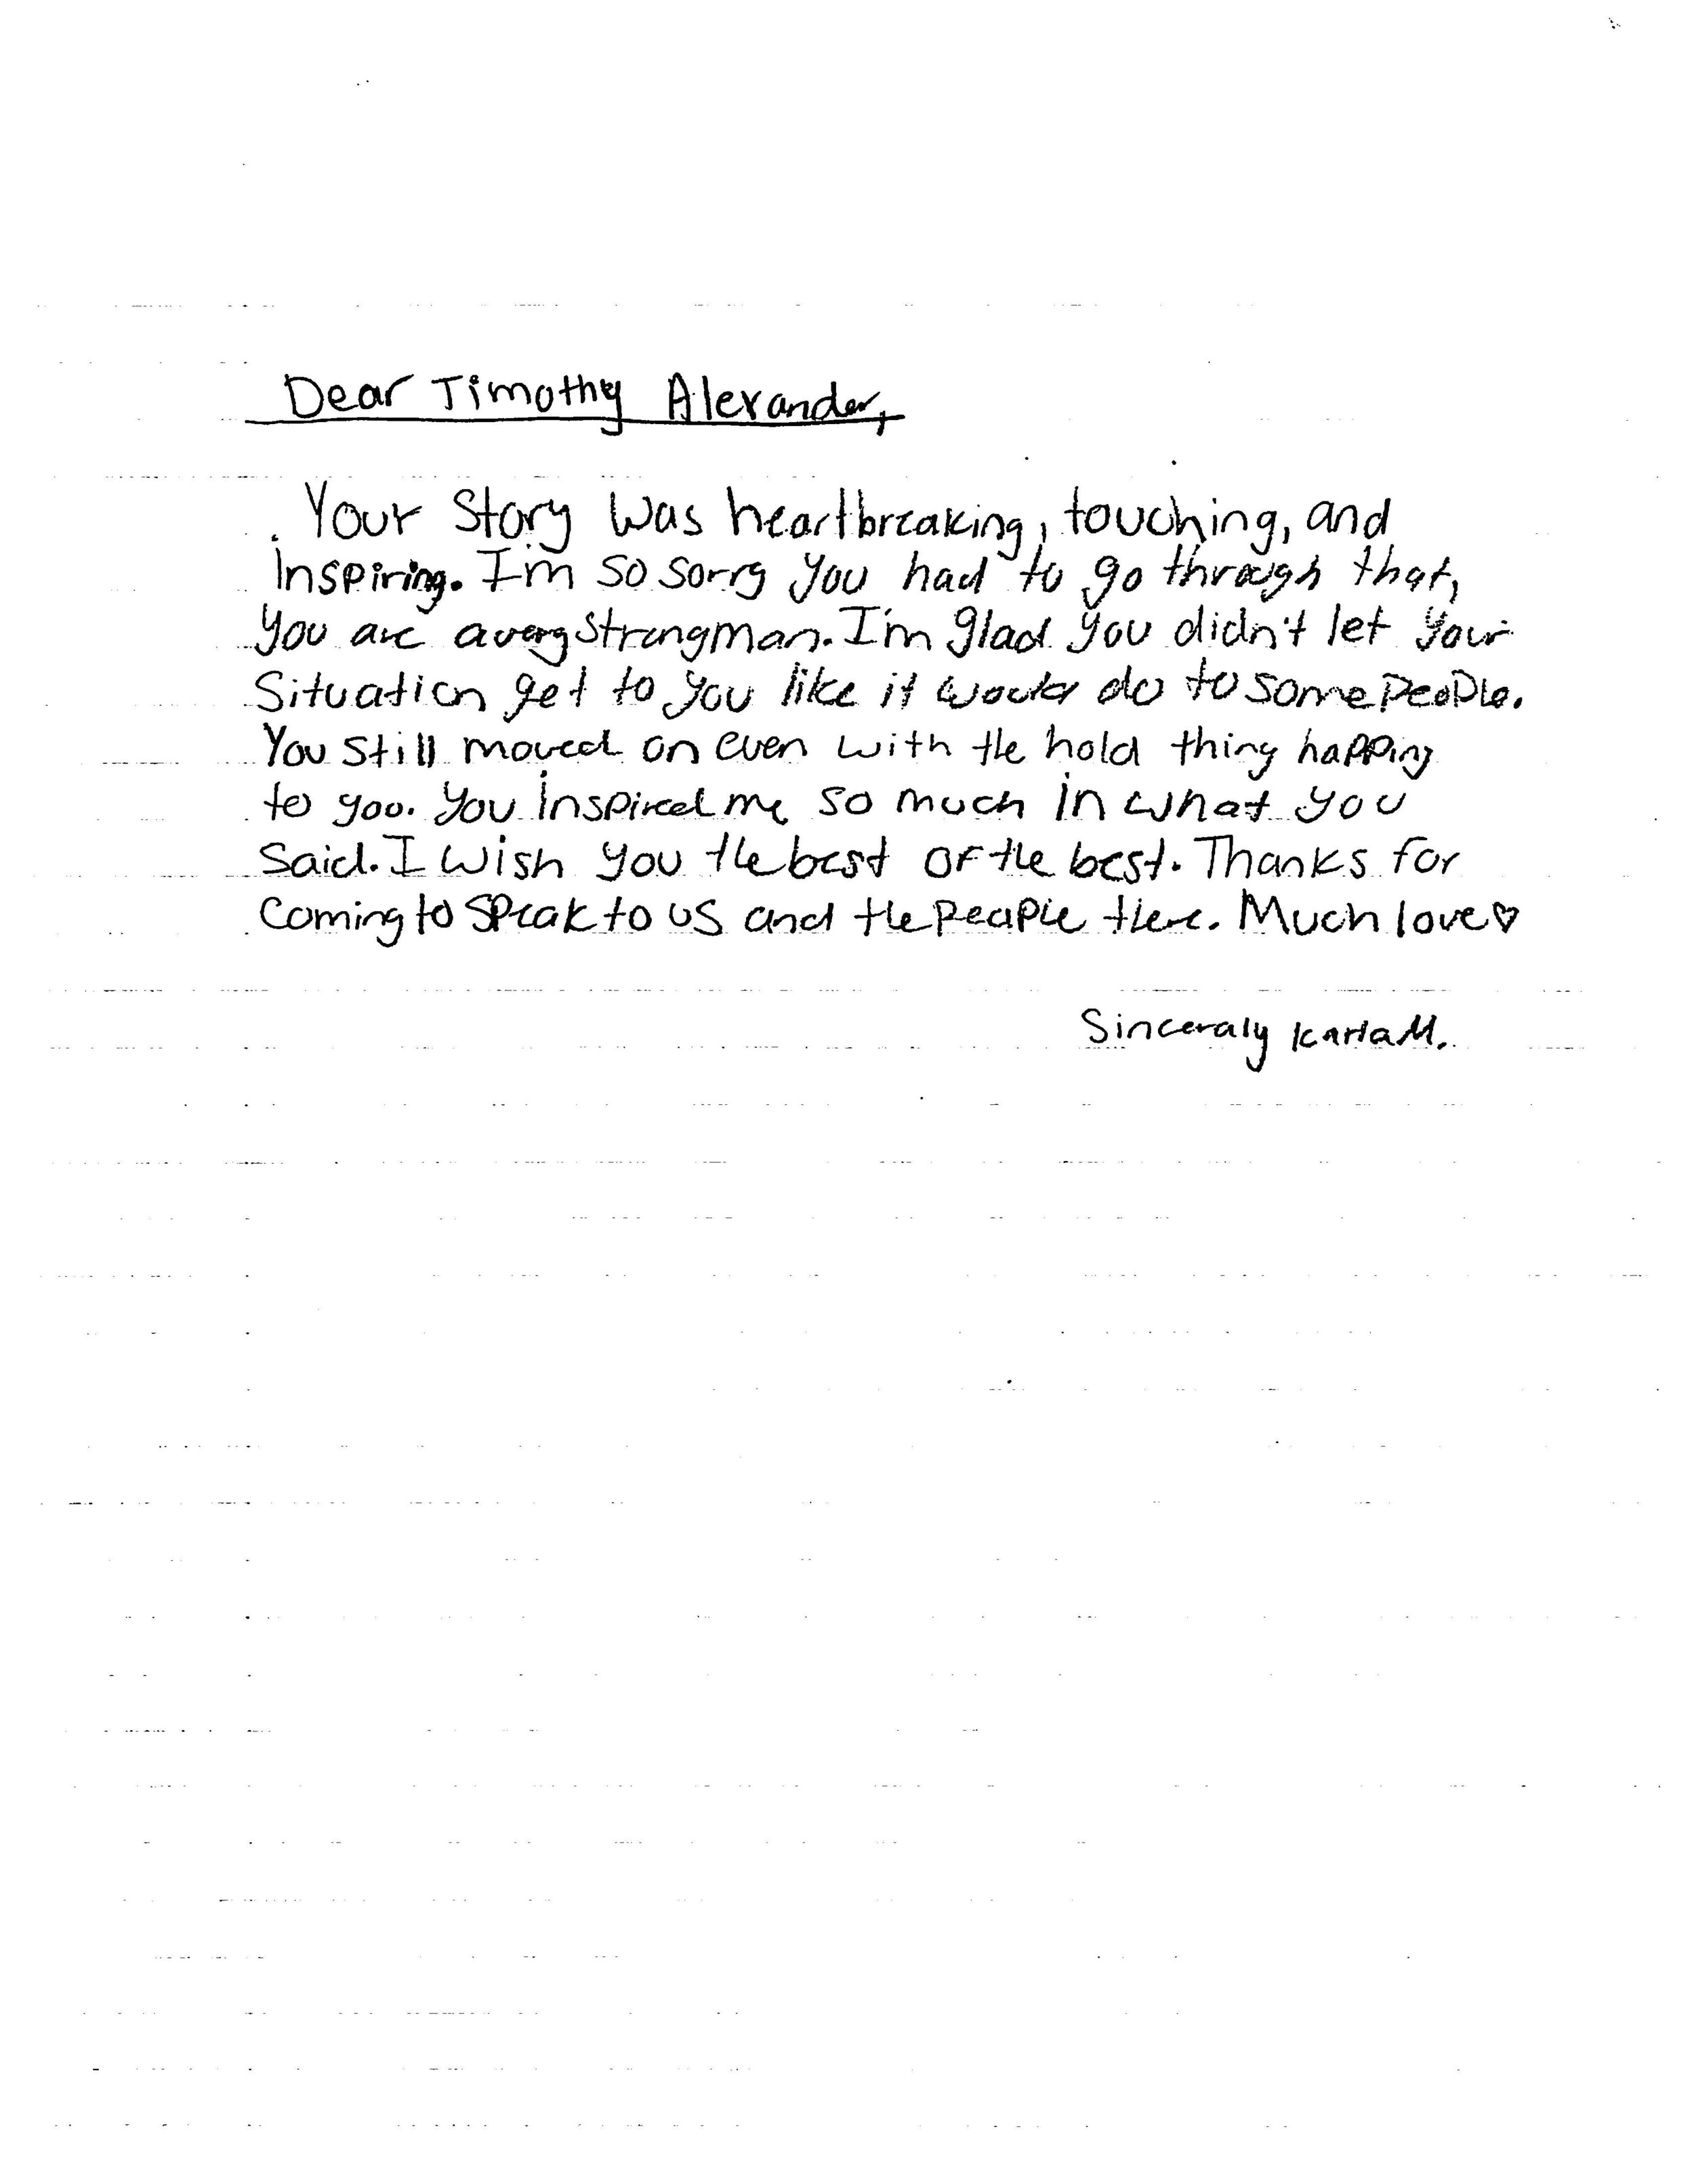 Dear Timothy Alexander,
Your Story Was heartbreaking, touching, and
inspiring. I'm so sorry you had to go through that,
you are a very strong man. I'm glad you didn't let your
Situation get to you like it would do to some people.
You still moved on even with the hold thing happing
to you. You inspired me so much in what you
said. I wish you the best of the best. Thanks for
Coming to speak to us and the people there. Much love ♡
Sinceraly Karla M.